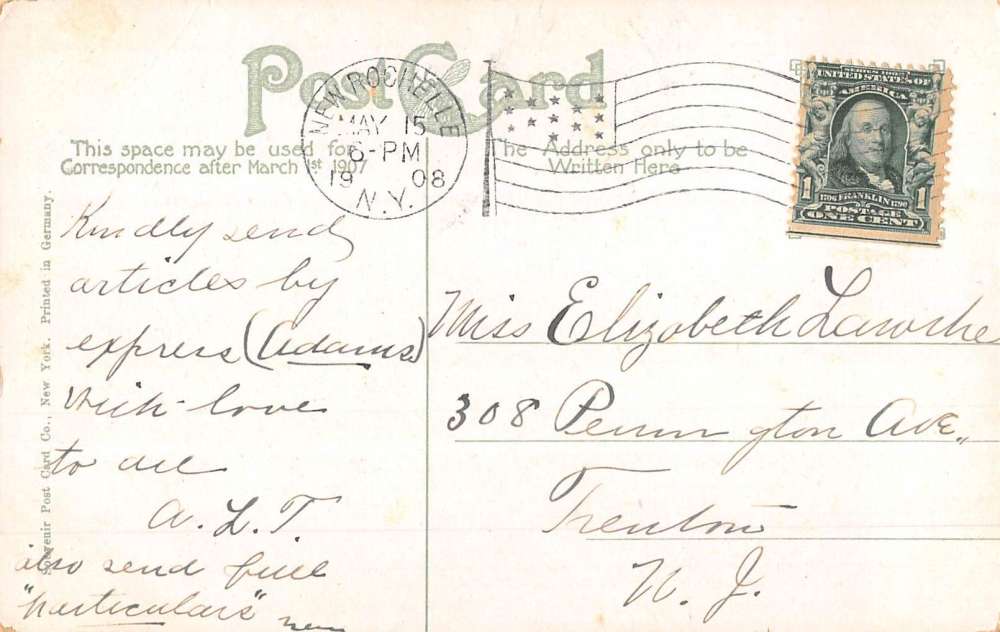 Post Card
This space may be used for
Correspondence after March 1st 1907
The Address only to be
Written Here
NEW ROCHELLE
MAY 15
6-PM
1908
N.Y.
SERIES 1902
UNITED STATES OF
AMERICA
1706 FRANKLIN 1790
POSTAGE
1 ONE CENT 1
Souvenir Post Card Co., New York. Printed in Germany.
Kindly send
articles by
express (Adams)
With love
to all
A. L. T.
also send full
"particulars"
Miss Elizabeth Lawshe
308 Pennington Ave.,
Trenton
N. J.